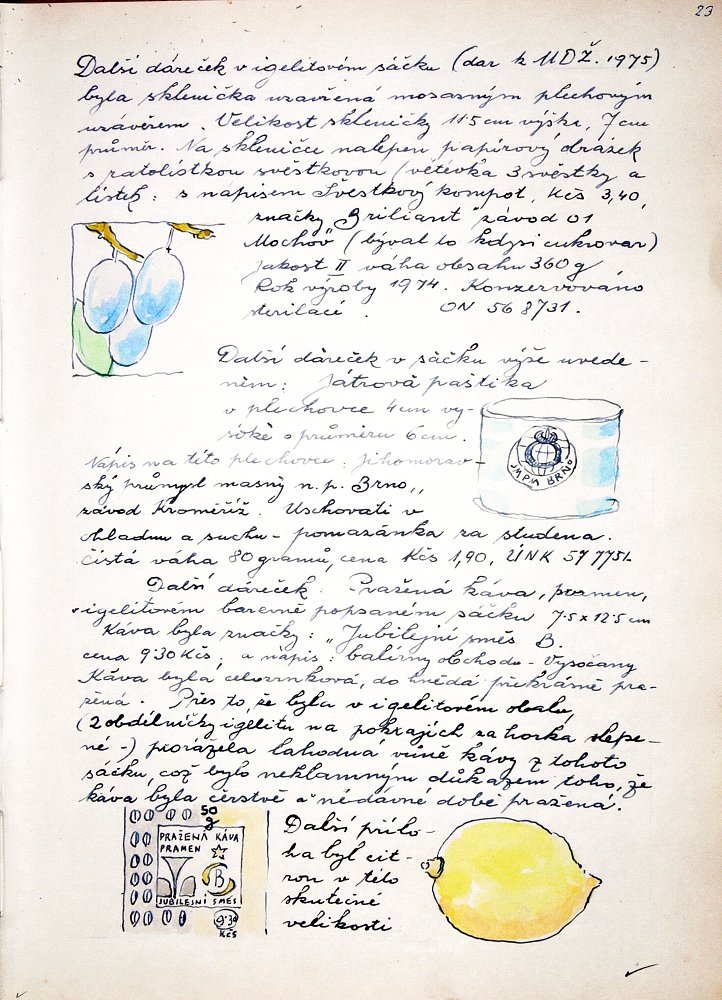 23
Další dáreček v igelitovém sáčku (dar k MDŽ. 1975)
byla sklenička uzavřená mosazným plechovým
uzávěrem. Velikost skleničky 11·5 cm výška, 7 cm
průměr. Na skleničce nalepen papírový obrázek
s ratolístkou švěstkovou (větévka 3 švěstky a
lístek: s napisem Švestkový kompot, Kčs 3,40,
značky "Briliant" závod 01
Mochov" (býval to kdysi cukrovar)
Jakost II váha obsahu 360 g
Rok výroby 1974. Konzervováno
sterilací. ON 56 8731.
Další dáreček v sáčku výše uvede-
ném: Játrová paštika
v plechovce 4 cm vy-
soké o průměru 6 cm.
Nápis na této plechovce: Jihomorav-
ský průmysl masný n. p. Brno,,
závod Kroměříž. Uschovati v
chladnu a suchu - pomazánka za studena.
čistá váha 80 gramů, cena Kčs 1,90, ÚNK 57 7751.
JMPM BRNO
Další dáreček: Pražená káva, pramen,
v igelitovém barevně popsaném sáčku 7·5 x 12·5 cm
Káva byla značky: „Jubilejní směs B.
cena 9·30 Kčs; a nápis: balírny obchodu - Vysočany
Káva byla celozrnková, do hnědá překrásně pra-
žená. Přes to, že byla v igelitovém obalu
(2 obdélničky igelitu na pokrajích za horka slepe-
né -) prorážela lahodná vůně kávy z tohoto
sáčku, což bylo neklamným důkazem toho, že
káva byla čerstvě a nedávné době pražená.
50
g
PRAŽENÁ KÁVA
PRAMEN
B
JUBILEJNÍ SMĚS
9·30
Kčs
Další přílo-
ha byl cit-
ron v této
skutečné
velikosti